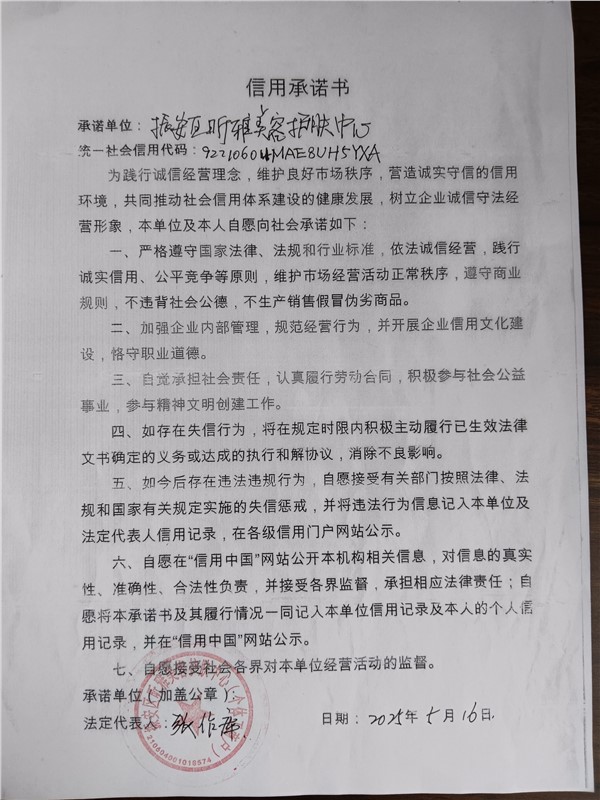 信用承诺书
承诺单位：振安区昕雅美容护肤中心
统一社会信用代码：92210604MAE8UH5YXA
为践行诚信经营理念，维护良好市场秩序，营造诚实守信的信用
环境，共同推动社会信用体系建设的健康发展，树立企业诚信守法经
营形象，本单位及本人自愿向社会承诺如下：
一、严格遵守国家法律、法规和行业标准，依法诚信经营，践行
诚实信用、公平竞争等原则，维护市场经营活动正常秩序，遵守商业
规则，不违背社会公德，不生产销售假冒伪劣商品。
二、加强企业内部管理，规范经营行为，并开展企业信用文化建
设，恪守职业道德。
三、自觉承担社会责任，认真履行劳动合同，积极参与社会公益
事业，参与精神文明创建工作。
四、如存在失信行为，将在规定时限内积极主动履行已生效法律
文书确定的义务或达成的执行和解协议，消除不良影响。
五、如今后存在违法违规行为，自愿接受有关部门按照法律、法
规和国家有关规定实施的失信惩戒，并将违法行为信息记入本单位及
法定代表人信用记录，在各级信用门户网站公示。
六、自愿在“信用中国”网站公开本机构相关信息，对信息的真实
性、准确性、合法性负责，并接受各界监督，承担相应法律责任；自
愿将本承诺书及其履行情况一同记入本单位信用记录及本人的个人信
用记录，并在“信用中国”网站公示。
七、自愿接受社会各界对本单位经营活动的监督。
承诺单位（加盖公章）：
法定代表人：张作 日期：2025年5月16日
210604001016574